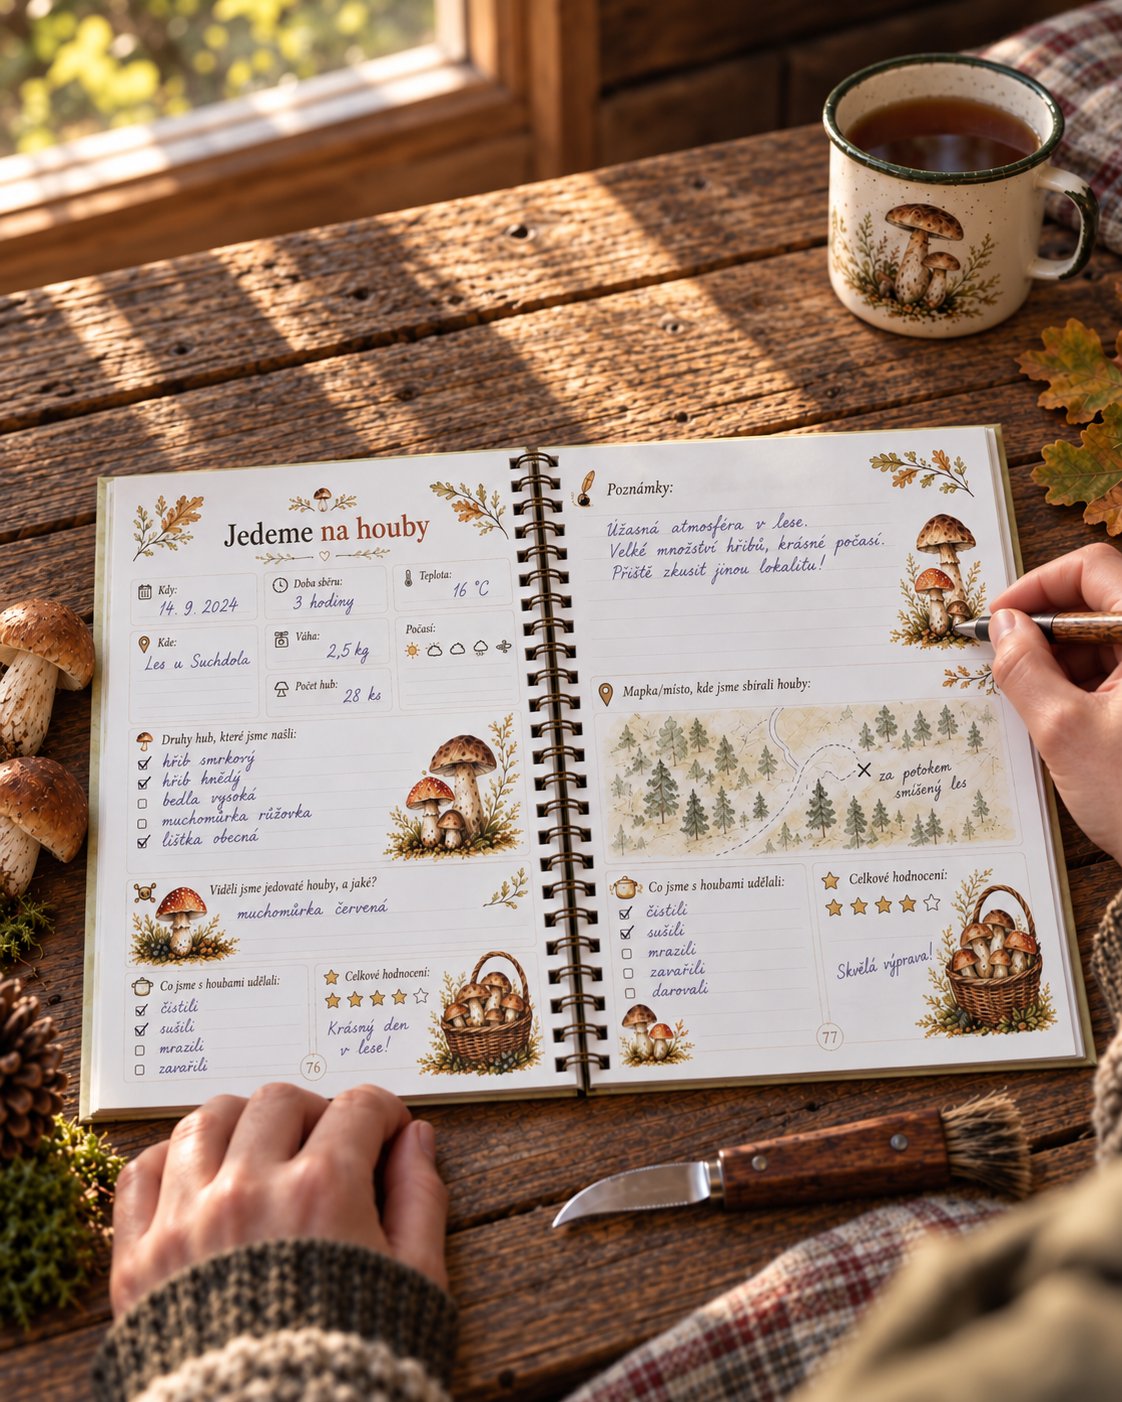 Jedeme na houby
Kdy:
14. 9. 2024
Doba sběru:
3 hodiny
Teplota:
16 °C
Kde:
Les u Suchdola
Váha:
2,5 kg
Počasí:
Počet hub:
28 ks
Druhy hub, které jsme našli:
hřib smrkový
hřib hnědý
bedla vysoká
muchomůrka růžovka
lištka obecná
Viděli jsme jedovaté houby, a jaké?
muchomůrka červená
Co jsme s houbami udělali:
čistili
sušili
mrazili
zavařili
Celkové hodnocení:
Krásný den
v lese!
76
Poznámky:
Úžasná atmosféra v lese.
Velké množství hřibů, krásné počasí.
Příště zkusit jinou lokalitu!
Mapka/místo, kde jsme sbírali houby:
za potokem
smíšený les
Co jsme s houbami udělali:
čistili
sušili
mrazili
zavařili
darovali
Celkové hodnocení:
Skvělá výprava!
77